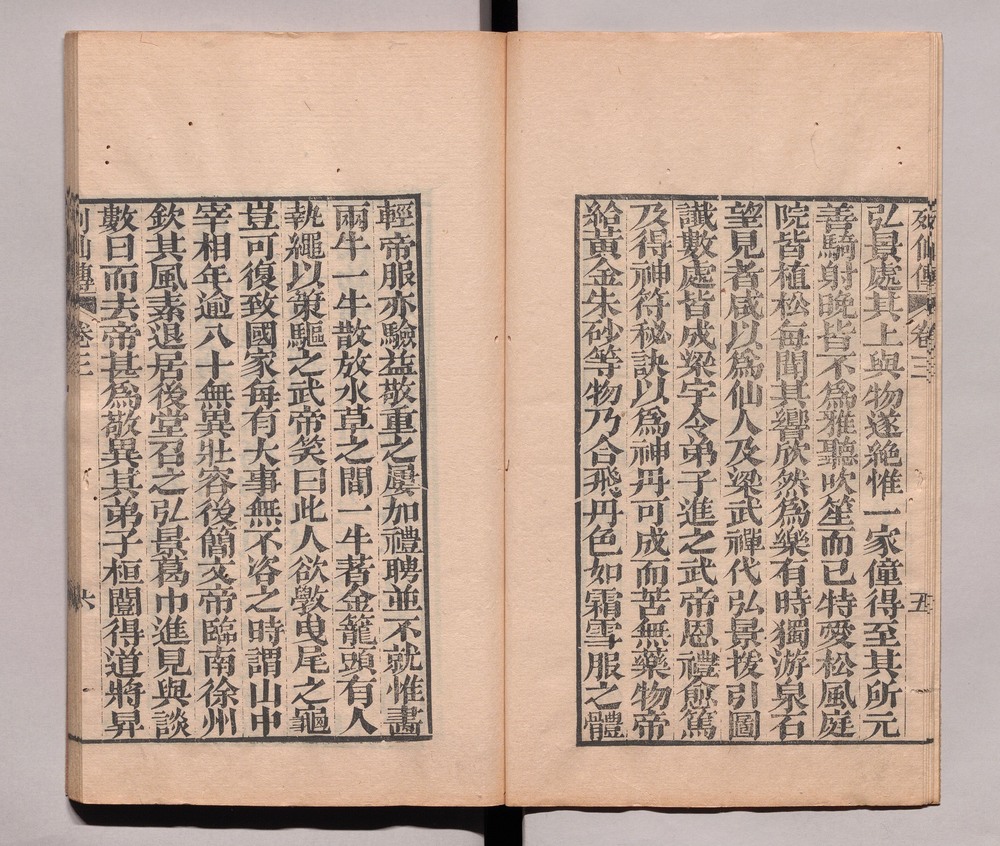 列仙傳 卷三 五
弘景處其上與物遂絶惟一家僮得至其所元
善騎射晚皆不爲雅聽吹笙而已特愛松風庭
院皆植松每聞其響欣然爲樂有時獨游泉石
望見者咸以爲仙人及梁武禪代弘景援引圖
讖數處皆成梁字令弟子進之武帝恩禮愈篤
及得神符秘訣以爲神丹可成而苦無藥物帝
給黃金朱砂等物乃合飛丹色如霜雪服之體
輕帝服亦驗益敬重之屢加禮聘並不就惟畵
兩牛一牛散放水草之間一牛著金籠頭有人
執繩以策驅之武帝笑曰此人欲斆曳尾之龜
豈可復致國家每有大事無不咨之時謂山中
宰相年逾八十無異壯容後簡文帝臨南徐州
欽其風素退居後堂召之弘景葛巾進見與談
數日而去帝甚爲敬異其弟子桓闓得道將昇
列仙傳 卷三 六